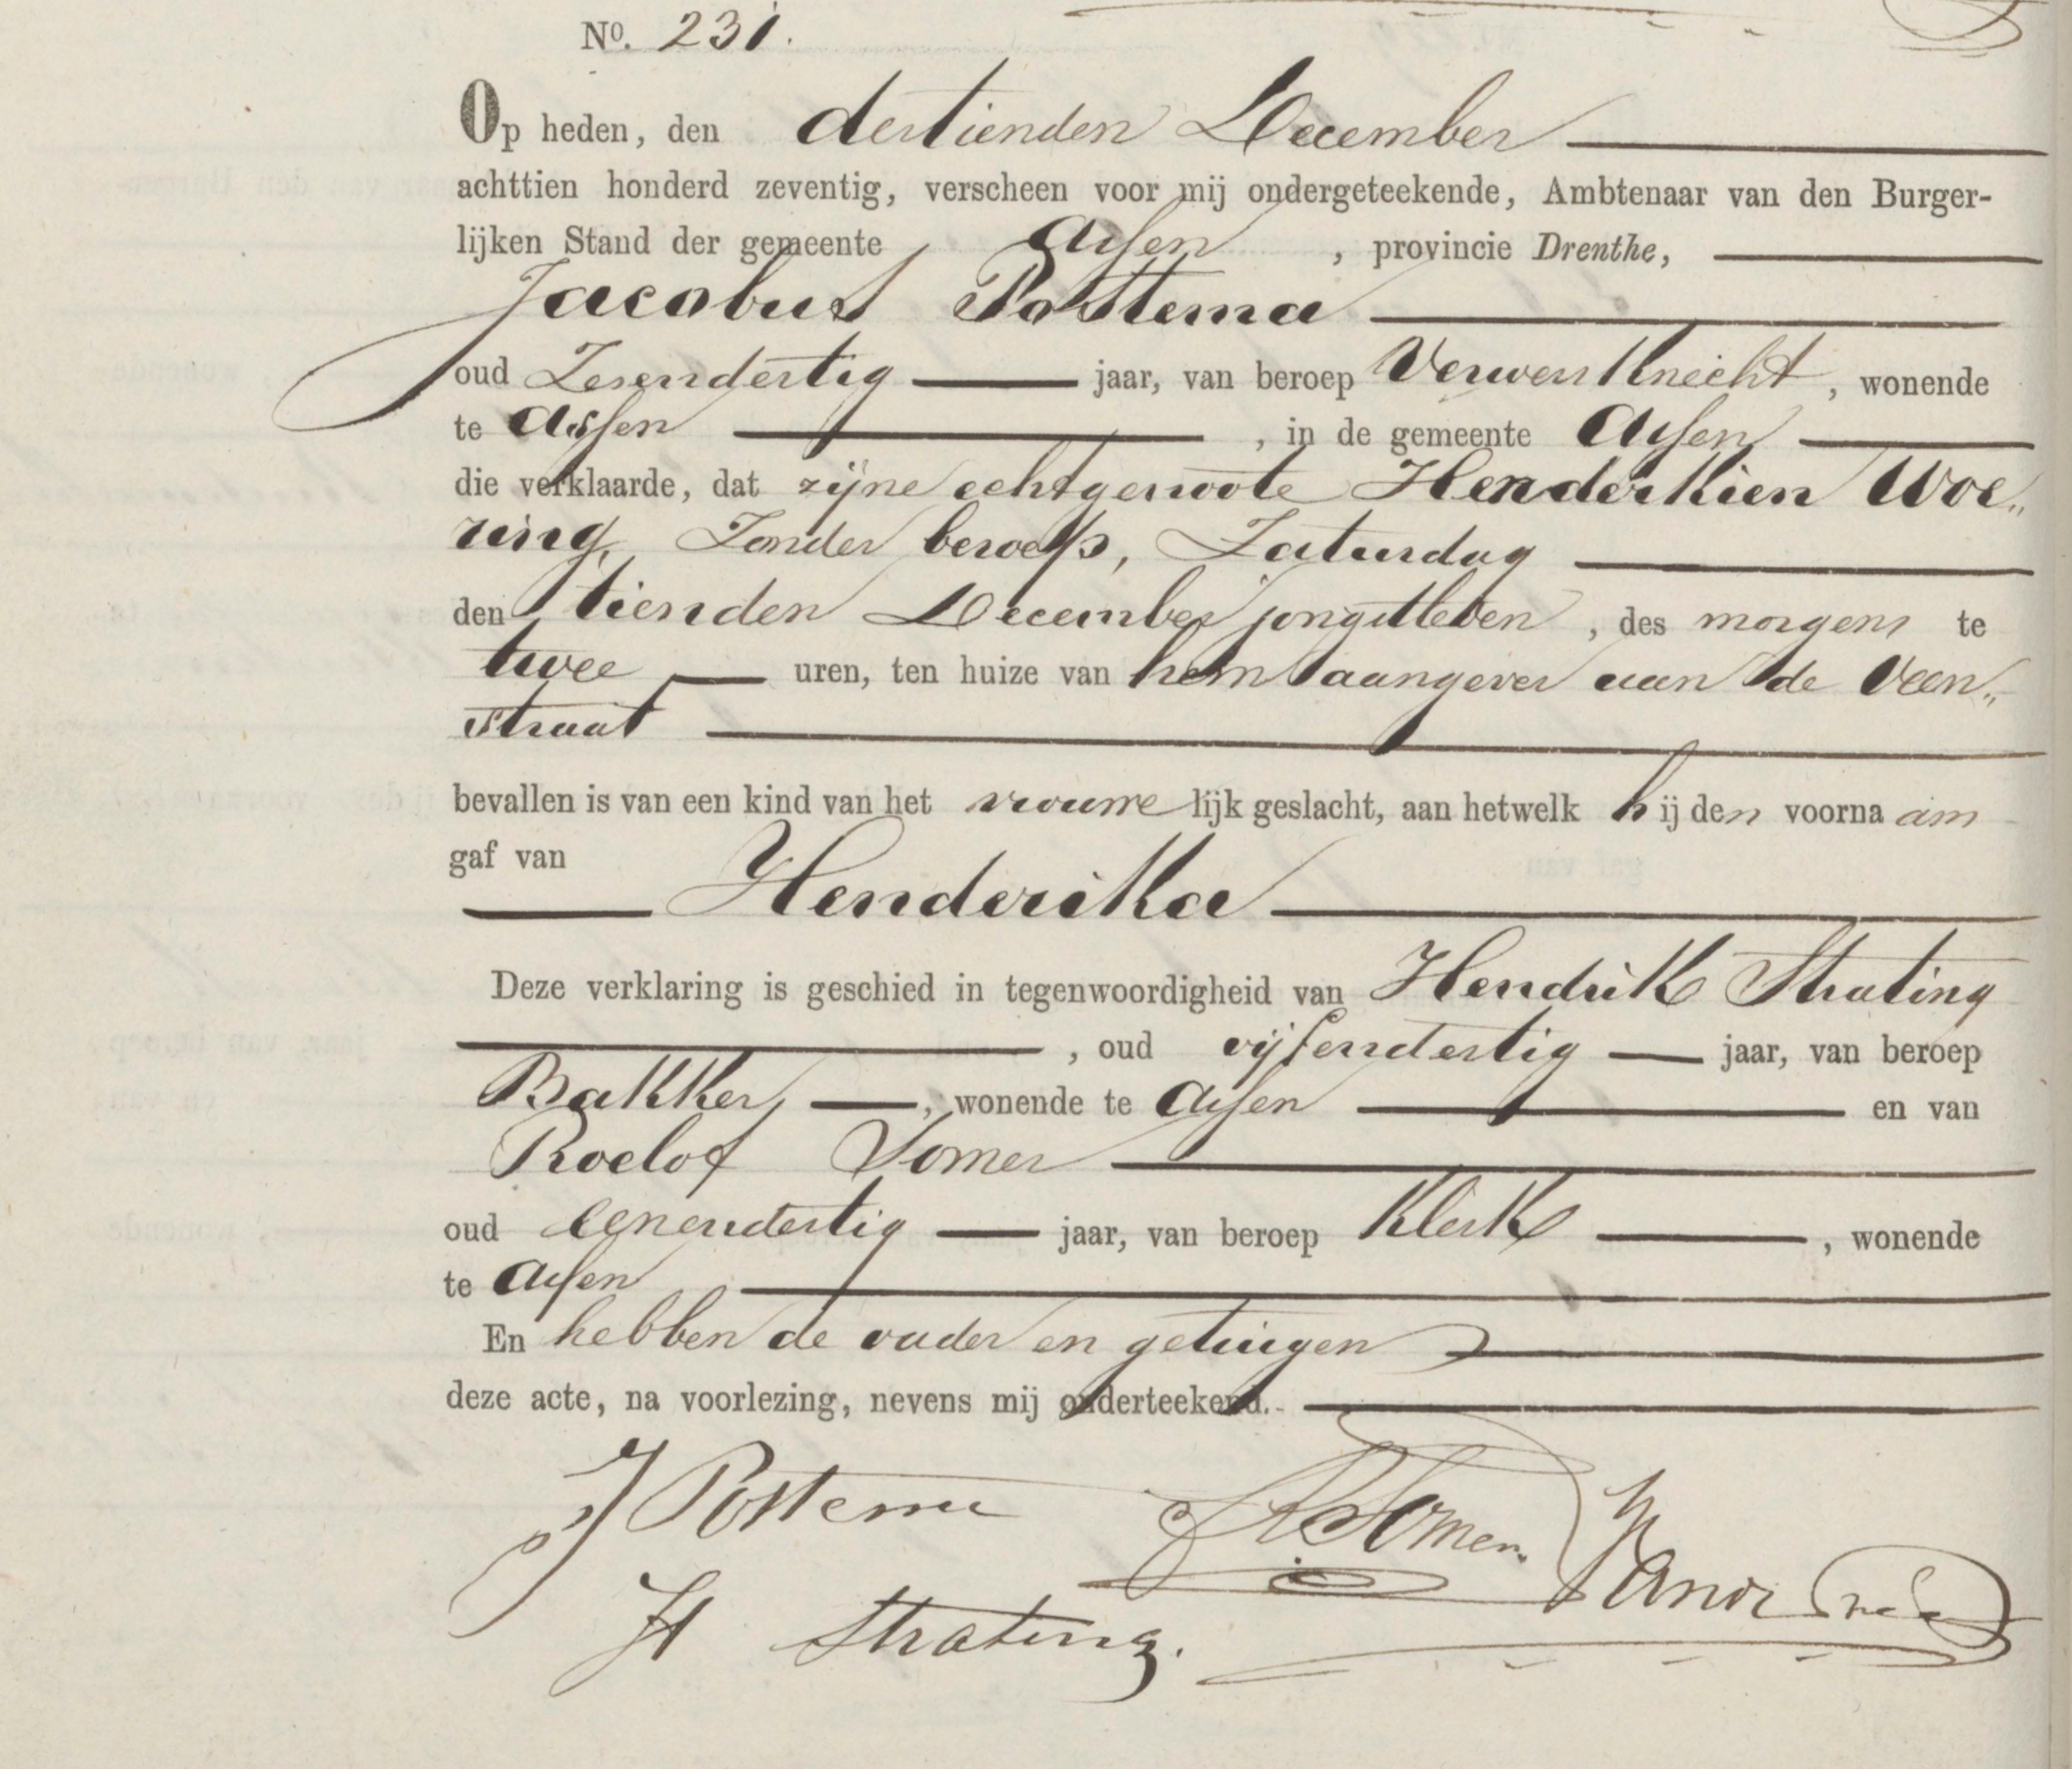 No. 231.
Op heden, den dertienden December
achttien honderd zeventig, verscheen voor mij ondergeteekende, Ambtenaar van den Burger-
lijken Stand der gemeente Assen, provincie Drenthe,
Jacobus Postema
oud Zesendertig jaar, van beroep Verwersknecht, wonende
te Assen, in de gemeente Assen
die verklaarde, dat zijne echtgenoote Henderkien Woe„
ring, Zonder beroep, Zaturdag
den tienden December jongstleden, des morgens te
twee uren, ten huize van hem aangever aan de Veen„
straat
bevallen is van een kind van het vrouwelijk geslacht, aan hetwelk hij den voornaam
gaf van
Henderika
Deze verklaring is geschied in tegenwoordigheid van Hendrik Strating
, oud vijfendertig jaar, van beroep
Bakker, wonende te Assen en van
Roelof Somer
oud eenendertig jaar, van beroep Klerk, wonende
te Assen
En hebben de vader en getuigen
deze acte, na voorlezing, nevens mij onderteekend.
J Postema RSomer
H Strating.